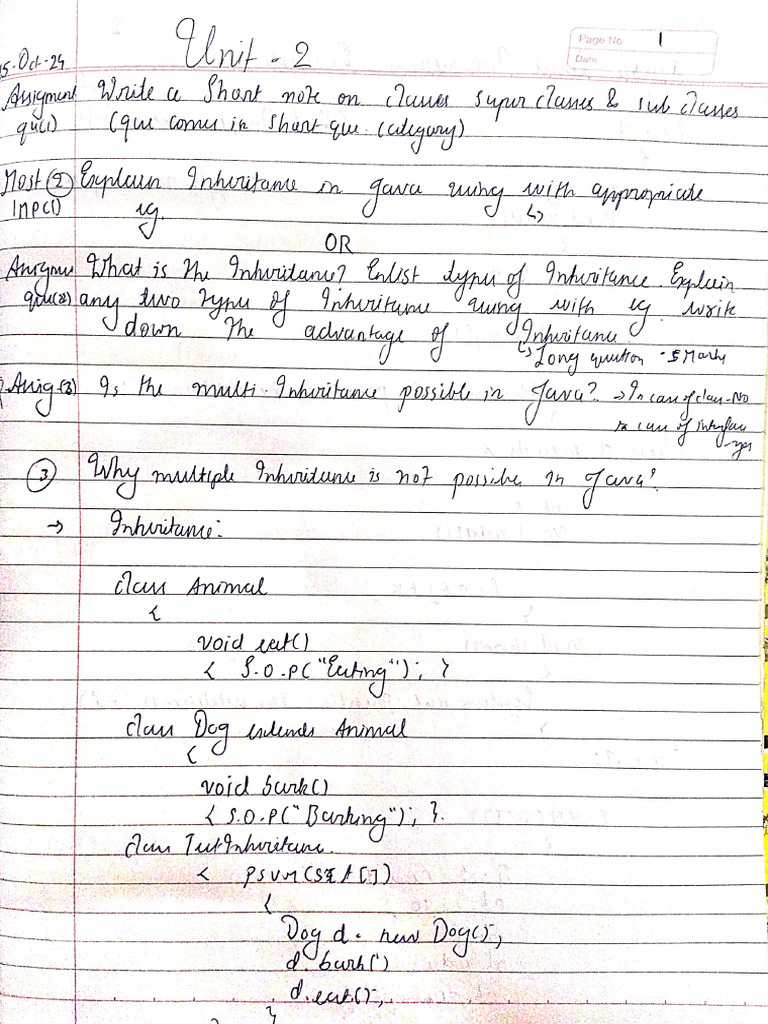 Unit - 2
Page No 1
Date
5-Oct-24
Assigment Write a Short note on classes super classes & sub classes
qu(1) (que comes in short que. (category)
Most (2) Explain Inheritance in Java using with appropriate
Imp(1) eg
OR
What is the Inheritance? Enlist types of Inheritance. Explain
que(2) any two types of Inheritance using with eg. write
down the advantage of Inheritance
↳ Long question - 5 Marks
Assig (3) Is the multi-Inheritance possible in Java? → In case of class-No
In case of interface
-yes
(3) Why multiple Inheritance is not possible in Java?
→ Inheritance:
class Animal
{
void eat()
{ S.O.P("Eating"); }
class Dog extends Animal
{
void bark()
{ S.O.P("Barking"); }.
class TestInheritance
{ PSVM(String A[])
{
Dog d = new Dog();
d.bark()
d.eat();
}